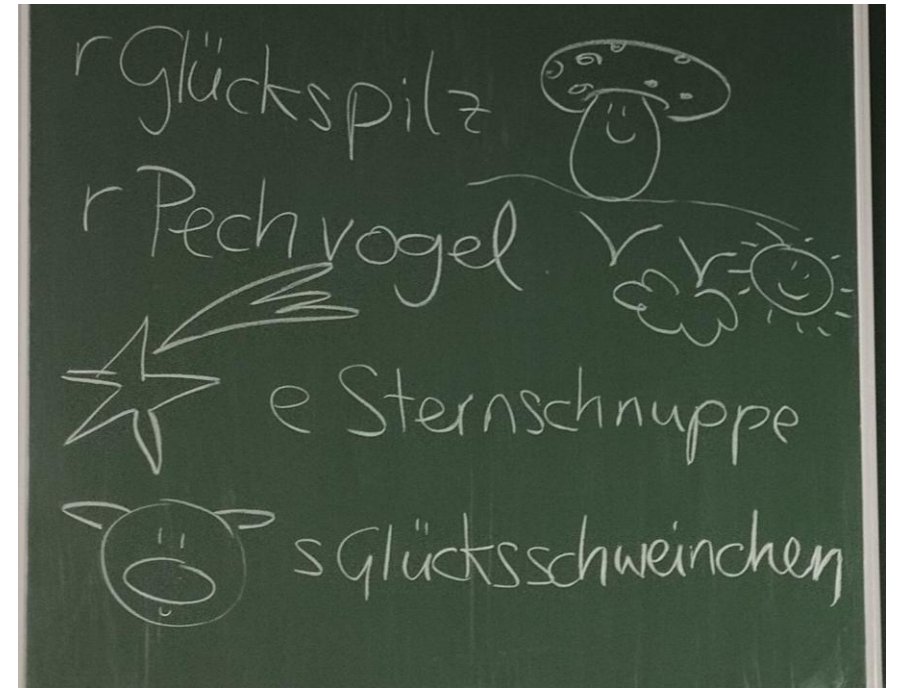 r Glückspilz
r Pechvogel
e Sternschnuppe
s Glücksschweinchen